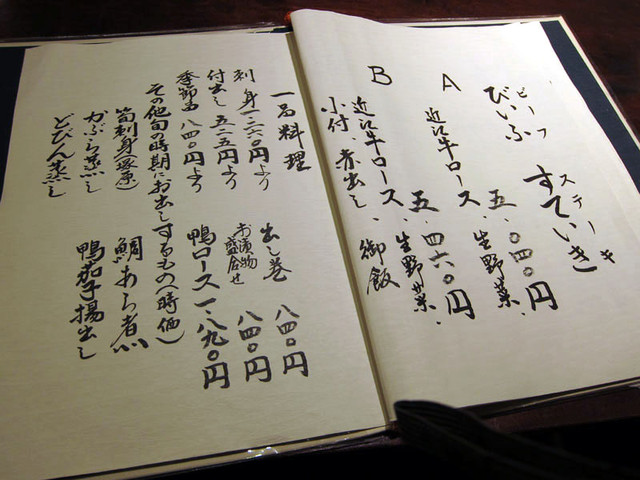 ビーフ ステーキ
びいふ すていき
A 五、〇四〇円
近江牛ロース、生野菜、
B 五、四六〇円
近江牛ロース、生野菜、
小付、赤出し、御飯
一品料理
刺身一、二六〇円より
出し巻 八四〇円
付出し 五二五円より
お漬物盛合せ 八四〇円
季節 八四〇円より
鴨ロース 一、八九〇円
その他旬の時期にお出しするもの(時価)
筍刺身(塚原)
鯛あら煮
かぶら蒸し
鴨茄子揚出し
どびん蒸し